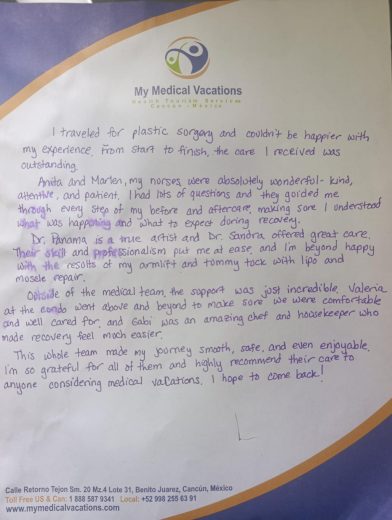 My Medical Vacations
Health Tourism Services
Cancun - Mexico
I traveled for plastic surgery and couldn't be happier with
my experience. From start to finish, the care I received was
outstanding.
Anita and Marlen, my nurses, were absolutely wonderful - kind,
attentive, and patient. I had lots of questions and they guided me
through every step of my before and aftercare, making sure I understood
what was happening and what to expect during recovery.
Dr. Panama is a true artist and Dr. Sandra offered great care.
Their skill and professionalism put me at ease, and I'm beyond happy
with the results of my armlift and tummy tuck with lipo and
mosele repair.
Outside of the medical team, the support was just incredible. Valeria
at the condo went above and beyond to make sure we were comfortable
and well cared for, and Gabi was an amazing chef and housekeeper who
made recovery feel much easier.
This whole team made my journey smooth, safe, and even enjoyable.
I'm so grateful for all of them and highly recommend their care to
anyone considering medical vacations. I hope to come back!
Calle Retorno Tejon Sm. 20 Mz.4 Lote 31, Benito Juarez, Cancún, México
Toll Free US & Can: 1 888 587 9341 Local: +52 998 255 63 91
www.mymedicalvacations.com